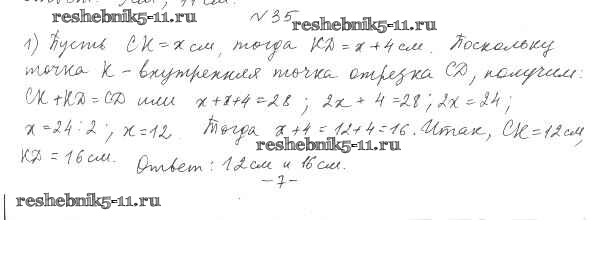 reshebnik5-11.ru
№35
reshebnik5-11.ru
1) Пусть CK = x см, тогда KD = x + 4 см. Поскольку
точка K - внутренняя точка отрезка CD, получим:
CK + KD = CD или x + x + 4 = 28 ; 2x + 4 = 28 ; 2x = 24 ;
x = 24 : 2 ; x = 12. Тогда x + 4 = 12 + 4 = 16. Итак, CK = 12 см,
reshebnik5-11.ru
KD = 16 см. Ответ: 12 см и 16 см.
- 7 -
reshebnik5-11.ru